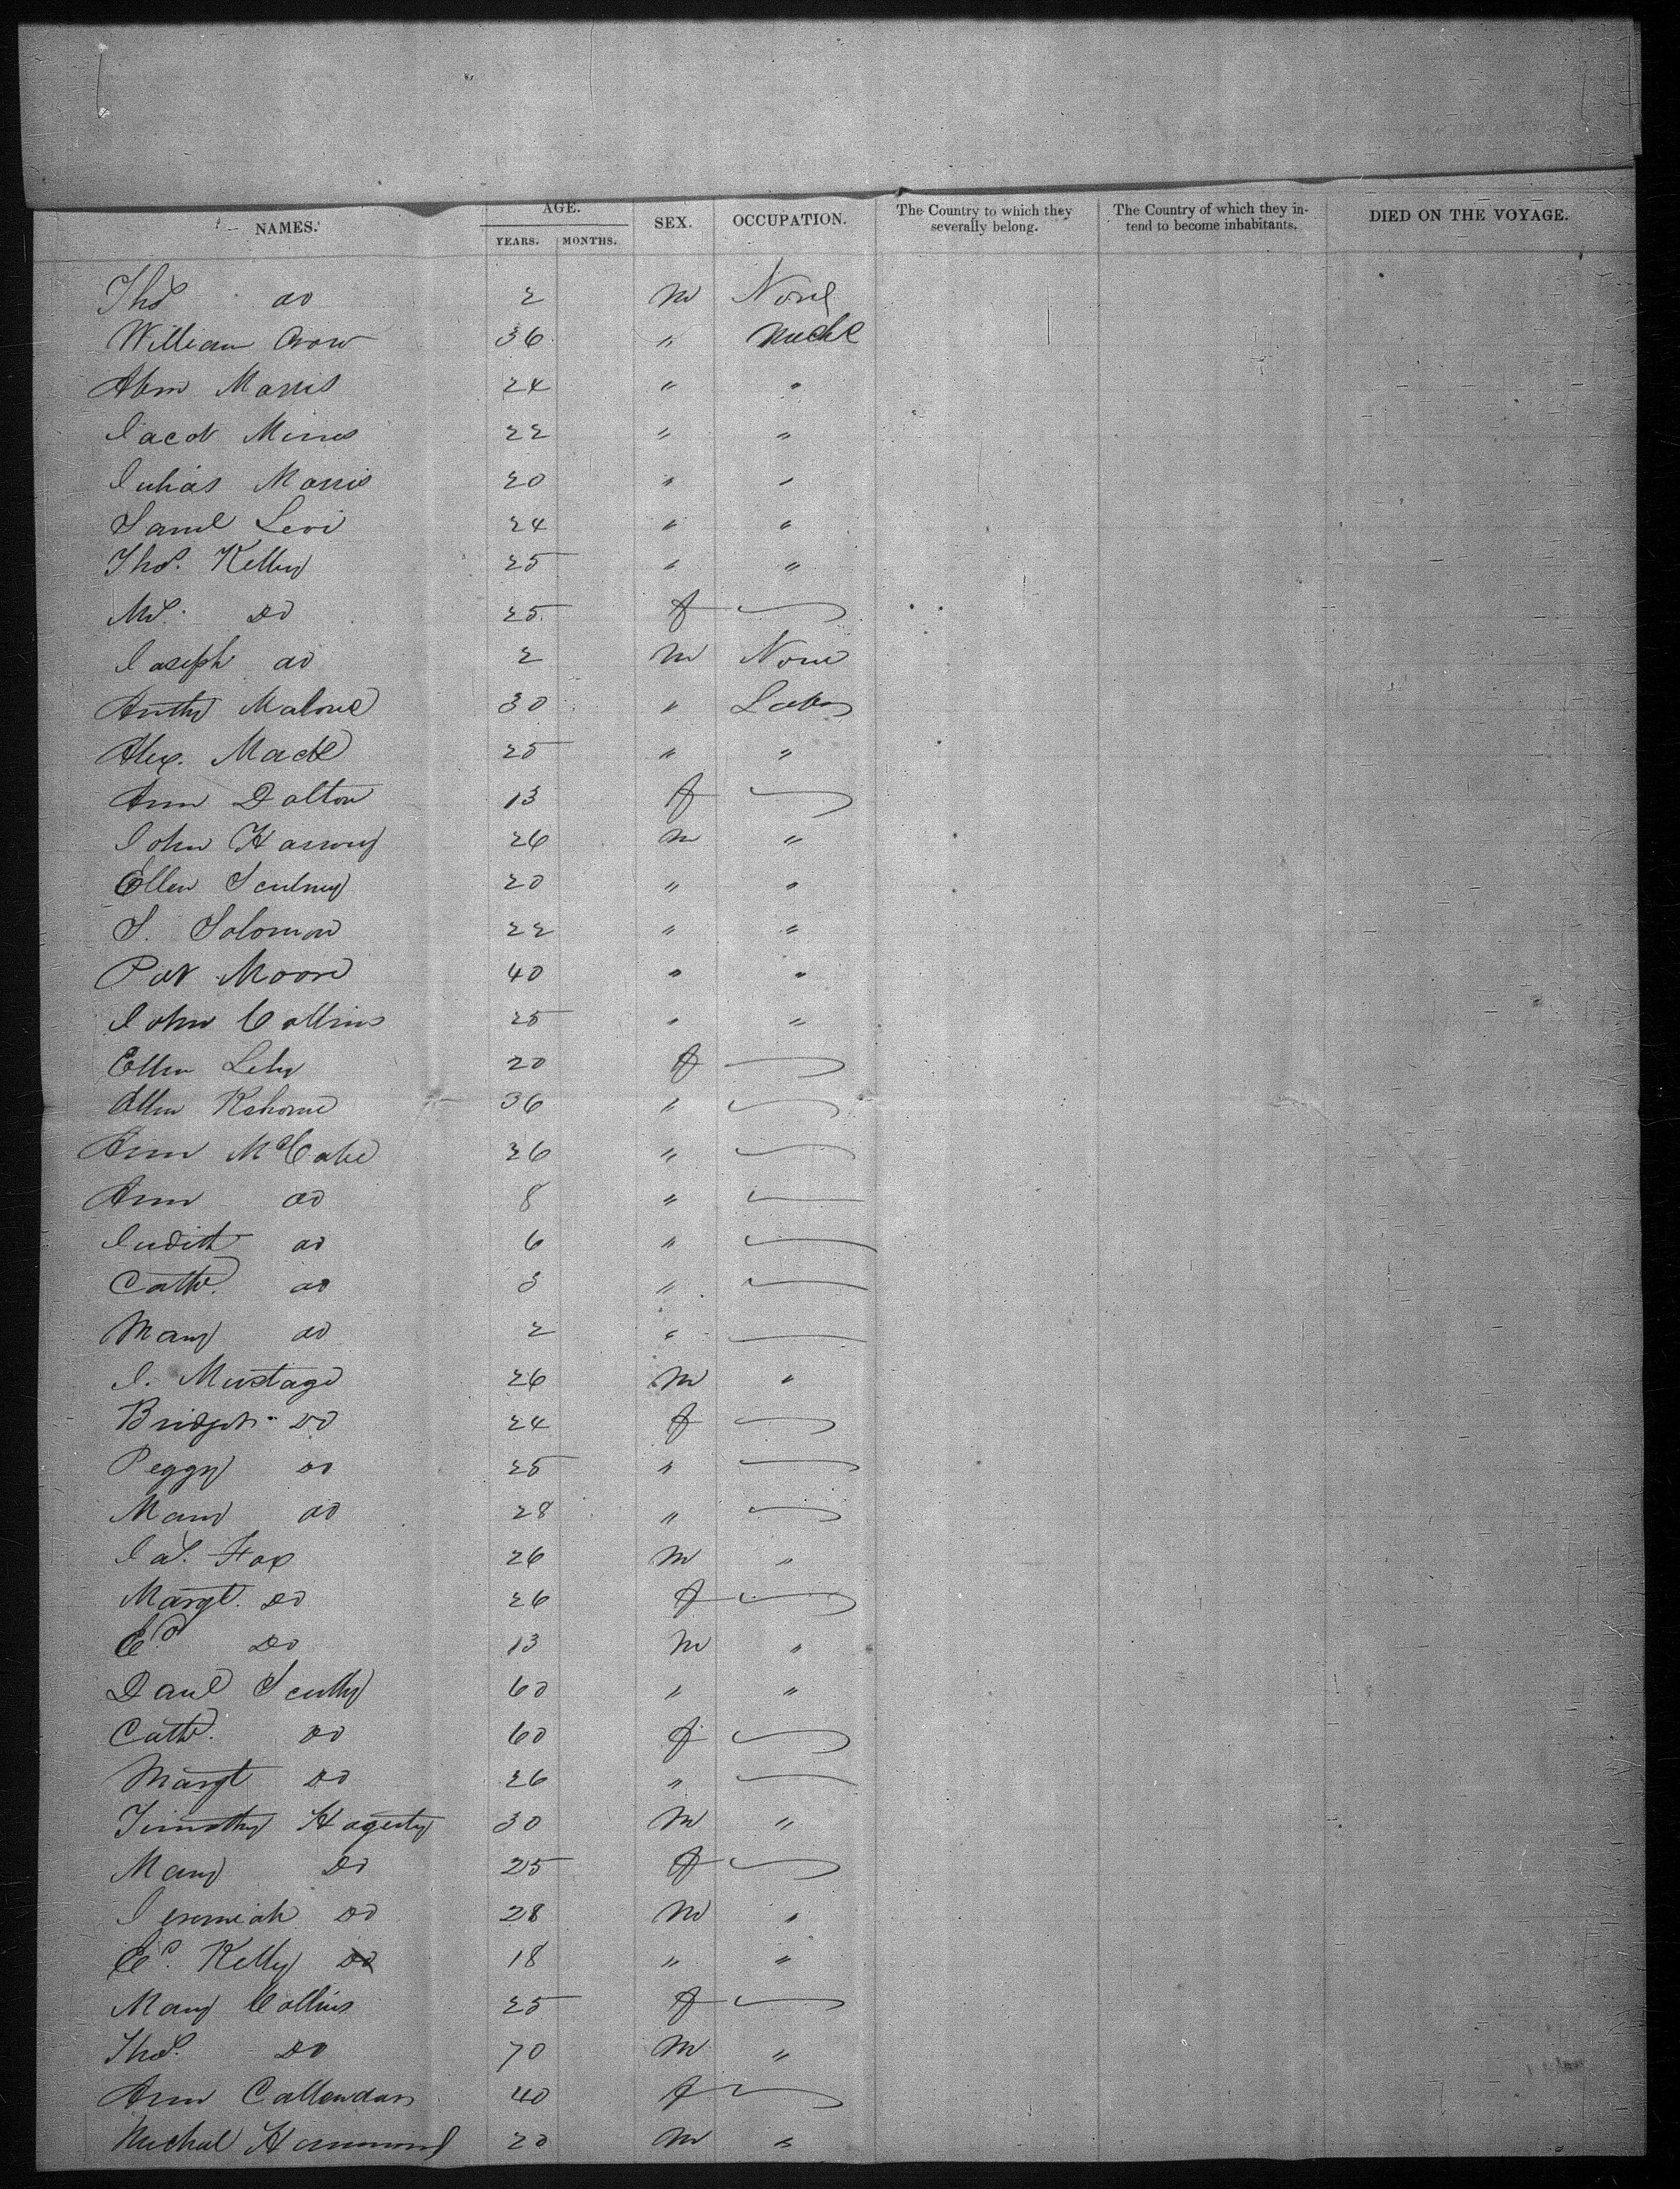 NAMES. AGE. SEX. OCCUPATION. The Country to which they severally belong. The Country of which they intend to become inhabitants. DIED ON THE VOYAGE.
YEARS. MONTHS.
Thos do 2 m None
William Crow 36 " Mechc
Abm Morris 24 " "
Jacob Morris 22 " "
Julias Morris 20 " "
Saml Levi 24 " "
Thos. Kelly 25 " "
Mrs. Do 25 f
Joseph do 2 m None
Anthy Malone 30 " Labr
Alex. Mack 25 " "
Ann Dalton 13 f
John 26 m "
Ellen 20 " "
S. Solomon 22 " "
Pat Moore 40 " "
John Collins 25 " "
Ellen 20 f
Ellen 36 "
Ann McCabe 36 "
Ann do 8 "
Judith do 6 "
Cathe. do 3 "
Mary do 2 "
J. Murtagh 26 m "
Bridget Do 24 f
Peggy do 25 "
Mary do 28 "
Jas. Fox 26 m "
Margt. Do 26 f
Ed Do 13 m "
Danl Scully 60 " "
Cathe. Do 60 f
Margt Do 26 "
Timothy Hagerty 30 m "
Mary Do 25 f
Jeremiah Do 28 m "
Ed. Kelly Do 18 " "
Mary Collins 25 f
Thos. Do 70 m "
Ann Callendan 40 f
Michal Hammond 20 m "